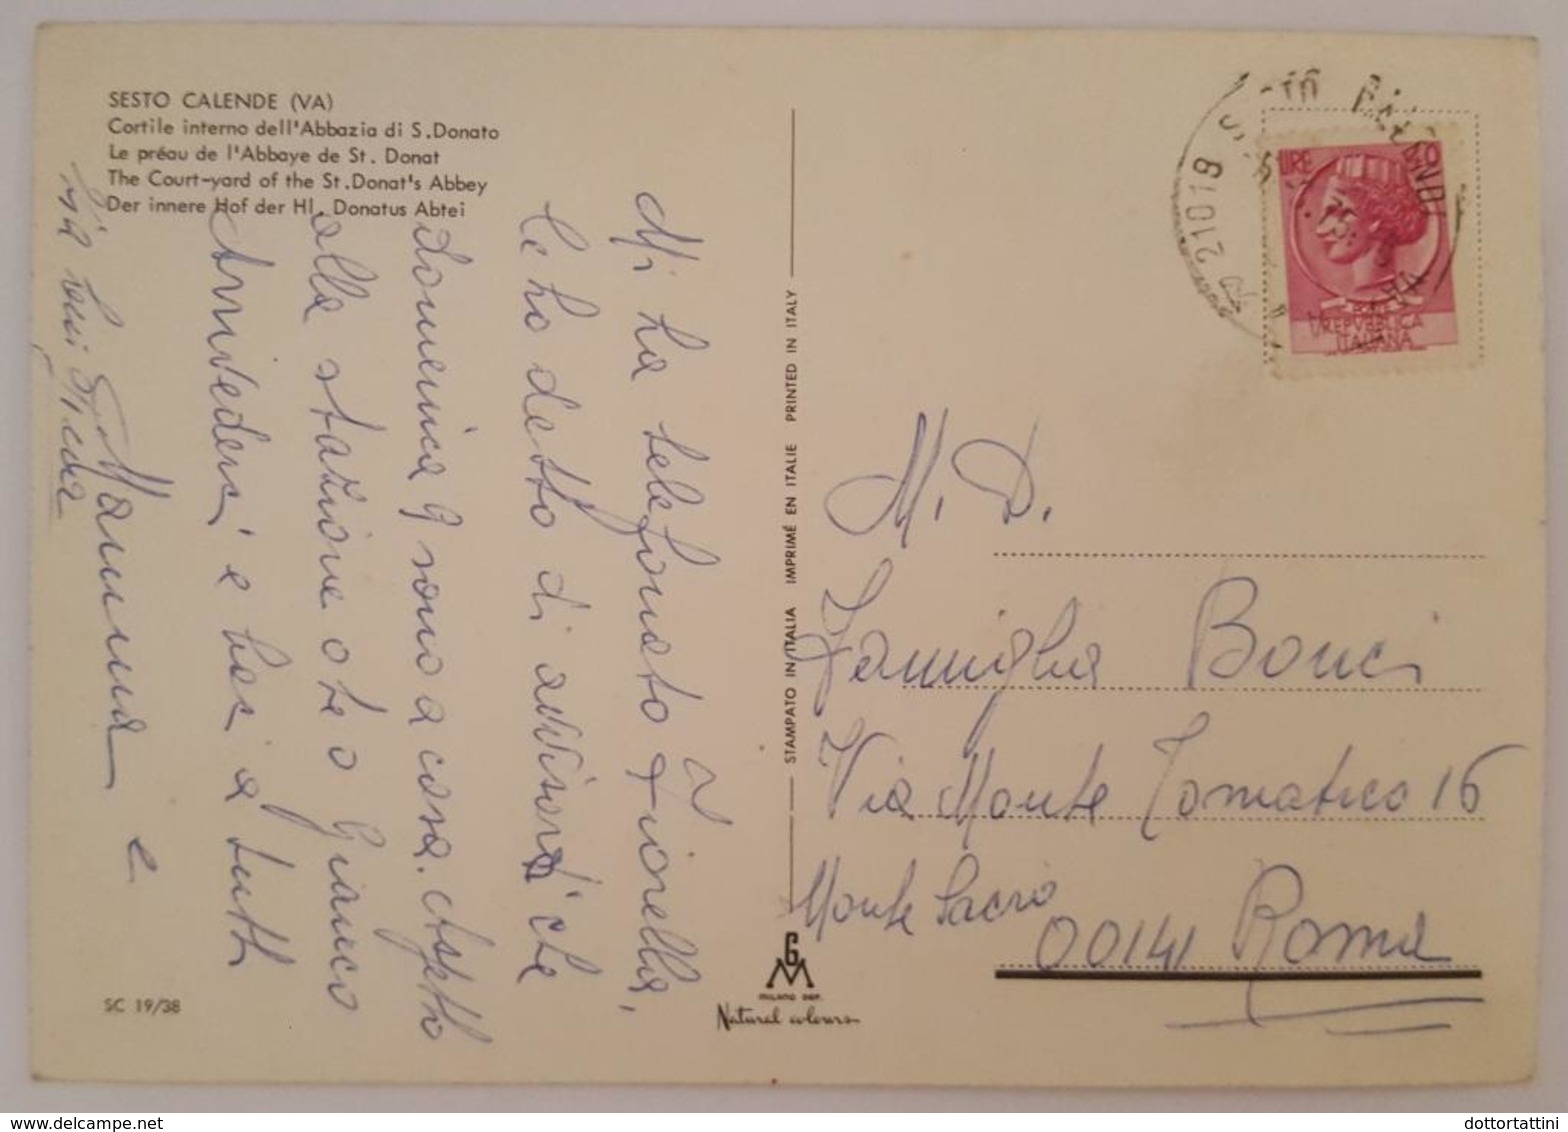 SESTO CALENDE (VA)
Cortile interno dell'Abbazia di S.Donato
Le préau de l'Abbaye de St. Donat
The Court-yard of the St.Donat's Abbey
Der innere Hof der Hl. Donatus Abtei
Mi ha telefonato Fiorella,
le ho detto di avvisarvi che
domenica 9 sono a casa. Aspetto
alla stazione o te o Gianco
Arrivederci e baci a tutti
Mamma e
SC 19/38
STAMPATO IN ITALIA IMPRIMÉ EN ITALIE PRINTED IN ITALY
GM
MILANO DEP.
Natural colours
21018 SESTO CALENDE
LIRE
REPVBBLICA
ITALIANA
M. D.
Famiglia Bonci
Via Monte Tomatico 16
Monte Sacro
00141 Roma
dottortattini